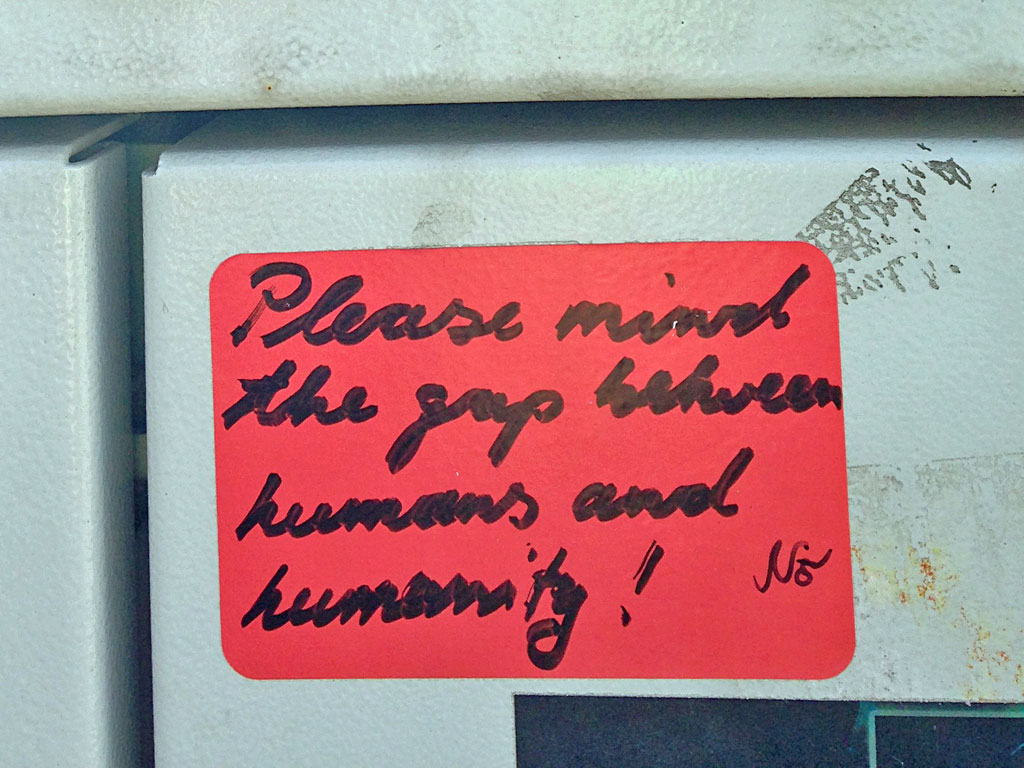 Please mind
the gap between
humans and
humanity!